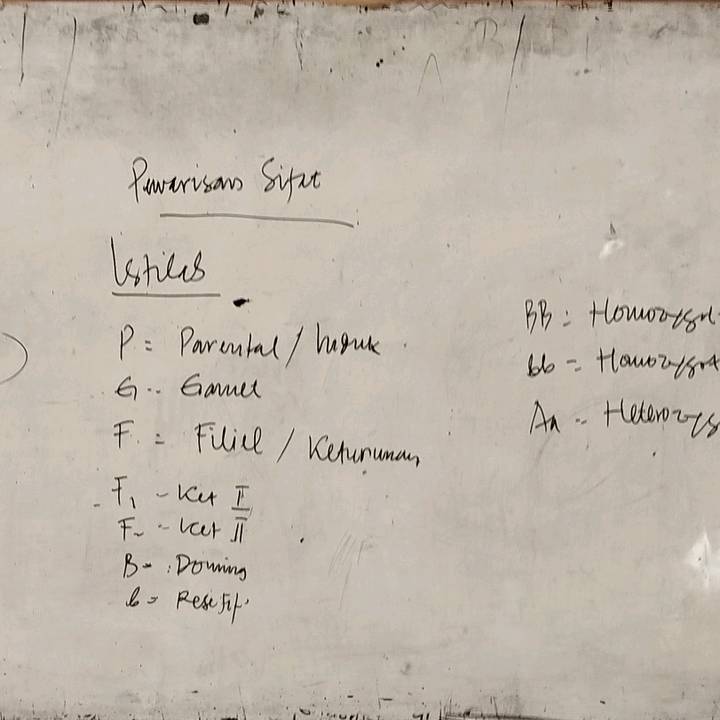 Pewarisan Sifat
Istilah
P = Parental / Induk
G = Gamet
F = Filiel / Keturunan
F1 - Ket I
F2 - Ket II
B = Domina
b = Resesif
BB = Homozygot
bb = Homozygot
Aa = Heterozyg